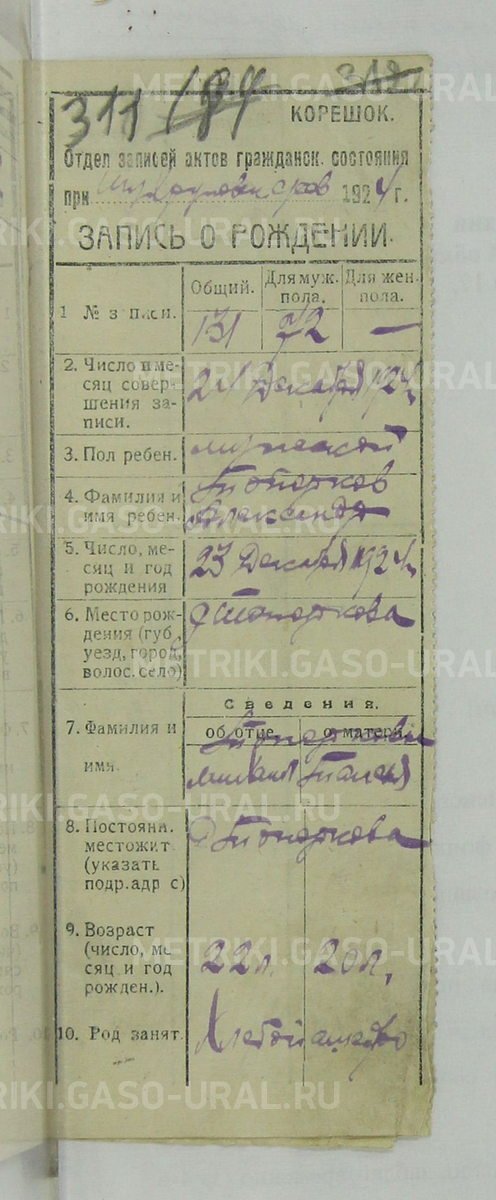 311 187 312
КОРЕШОК.
Отдел записей актов гражданск. состояния
при 1924 г.
ЗАПИСЬ О РОЖДЕНИИ.
1 № з писи.
Общий. Для муж. пола. Для жен. пола.
131 72 —
2. Число и ме-
сяц совер-
шения за-
писи.
24 Декабря 1924
3. Пол ребен.
мужской
4. Фамилия и
имя ребен.
Топорков
Александр
5. Число, ме-
сяц и год
рождения
23 Декабря 1924
6. Место рож-
дения (губ.,
уезд, город,
волос. село)
д Топоркова
Сведения.
об отце. о матери.
7. Фамилия и
имя
Топорковы
Михаил
8. Постоянн.
местожит
(указать
подр. адр с)
д Топоркова
9. Возраст
(число, ме
сяц и год
рожден.).
22 л. 20 л.
10. Род занят.
Хлебопашество
METRIKI.GASO-URAL.RU